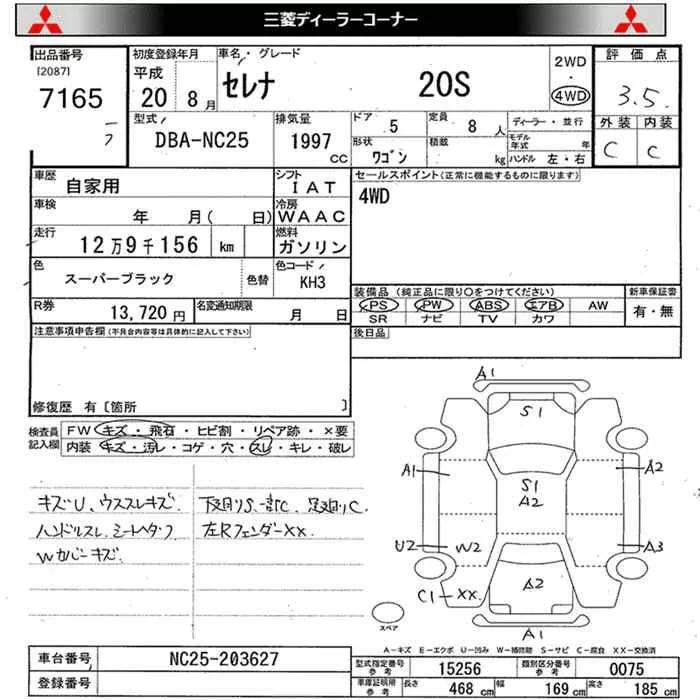 三菱ディーラーコーナー
出品番号 初度登録年月 車名・グレード 2WD 評価点
[2087] 平成 セレナ 20S ・
7165 20 8月 4WD 3.5
型式 排気量 ドア 5 定員 8人 ディーラー・並行 外装 内装
DBA-NC25 1997 cc 形状 ワゴン 積載 kg モデル年式 年 C C
ハンドル 左・右
車歴 自家用 シフト IAT セールスポイント(正常に機能するものに限ります)
車検 年 月( 日) 冷房 WAAC 4WD
走行 12万9千156 km 燃料 ガソリン
色 スーパーブラック 色替 色コード KH3
装備品(純正品に限り○をつけてください) 新車保証書
R券 13,720円 名変通知期限 月 日 PS PW ABS エアB AW 有・無
SR ナビ TV カワ
注意事項申告欄(不具合内容等は具体的に記入して下さい) 後日品
修復歴 有[箇所 ]
検査員 FW キズ・飛石・ヒビ割・リペア跡・×要
記入欄 内装 キズ・汚レ・コゲ・穴・スレ・キレ・破レ
キズU、ウススレキズ 下廻りS、一部C、足廻りC
ハンドルスレ、シートヘタリ 左Rフェンダーxx.
Wカバーキズ
A1
S1
A1 S1 A2
A2
U2 W2 A3
C1 xx. A2
A1
スペア
A-キズ E-エクボ U-凹み W-補修跡 S-サビ C-腐食 XX-交換済
車台番号 NC25-203627 型式指定番号 参考 15256 類別区分番号 参考 0075
登録番号 車庫証明用 参考 長さ 468 cm 幅 169 cm 高さ 185 cm